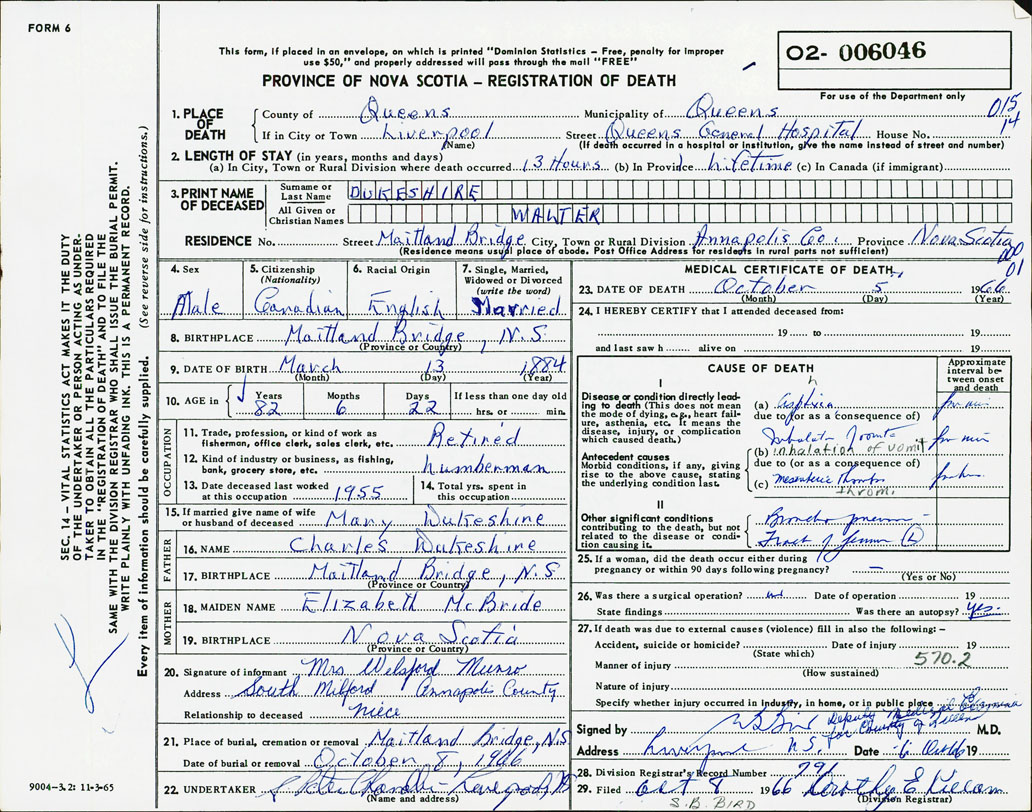 FORM 6
This form, if placed in an envelope, on which is printed "Dominion Statistics – Free, penalty for improper
use $50," and properly addressed will pass through the mail "FREE"
PROVINCE OF NOVA SCOTIA – REGISTRATION OF DEATH
02- 006046
For use of the Department only
015
14
1. PLACE OF DEATH
County of Queens Municipality of Queens
If in City or Town Liverpool Street Queens General Hospital House No.
(Name) (If death occurred in a hospital or institution, give the name instead of street and number)
2. LENGTH OF STAY (in years, months and days)
(a) In City, Town or Rural Division where death occurred 13 Hours (b) In Province Lifetime (c) In Canada (if immigrant)
3. PRINT NAME OF DECEASED
Surname or Last Name DUKESHIRE
All Given or Christian Names WALTER
RESIDENCE No. Street Maitland Bridge City, Town or Rural Division Annapolis Co. Province Nova Scotia
(Residence means usual place of abode. Post Office Address for residents in rural parts not sufficient)
000
01
4. Sex Male
5. Citizenship (Nationality) Canadian
6. Racial Origin English
7. Single, Married, Widowed or Divorced (write the word) Married
8. BIRTHPLACE Maitland Bridge, N.S
(Province or Country)
9. DATE OF BIRTH March 13 1884
(Month) (Day) (Year)
10. AGE in Years 82 Months 6 Days 22 If less than one day old hrs. or min.
OCCUPATION
11. Trade, profession, or kind of work as fisherman, office clerk, sales clerk, etc. Retired
12. Kind of industry or business, as fishing, bank, grocery store, etc. Lumberman
13. Date deceased last worked at this occupation 1955
14. Total yrs. spent in this occupation
15. If married give name of wife or husband of deceased Mary Dukeshire
FATHER
16. NAME Charles Dukeshire
17. BIRTHPLACE Maitland Bridge, N.S
(Province or Country)
MOTHER
18. MAIDEN NAME Elizabeth McBride
19. BIRTHPLACE Nova Scotia
(Province or Country)
20. Signature of informant Mrs Welsford Munro
Address South Milford Annapolis County
Relationship to deceased niece
21. Place of burial, cremation or removal Maitland Bridge, N.S
Date of burial or removal October 8, 1966
22. UNDERTAKER
(Name and address)
MEDICAL CERTIFICATE OF DEATH
23. DATE OF DEATH October 5 1966
(Month) (Day) (Year)
24. I HEREBY CERTIFY that I attended deceased from:
19 to 19
and last saw h alive on 19
CAUSE OF DEATH
Approximate interval between onset and death
I
Disease or condition directly leading to death (This does not mean the mode of dying, e.g., heart failure, asthenia, etc. It means the disease, injury, or complication which caused death.)
(a) Asphxia
h
due to (or as a consequence of)
Antecedent causes
Morbid conditions, if any, giving rise to the above cause, stating the underlying condition last.
(b) inhalation of vomit
due to (or as a consequence of)
(c) mesenteric
II
Other significant conditions
contributing to the death, but not related to the disease or condition causing it.
Broncho
25. If a woman, did the death occur either during pregnancy or within 90 days following pregnancy? –
(Yes or No)
26. Was there a surgical operation? Date of operation 19
State findings Was there an autopsy? yes
27. If death was due to external causes (violence) fill in also the following: –
Accident, suicide or homicide? Date of injury 19
(State which)
570.2
Manner of injury
(How sustained)
Nature of injury
Specify whether injury occurred in Industry, in home, or in public place
Signed by Deputy Medical for County of Queens M.D.
Address N.S. Date 6 Oct 66 19
28. Division Registrar's Record Number 791
29. Filed Oct 8 1966 Dorothy E
S.B. BIRD (Division Registrar)
SEC. 14 – VITAL STATISTICS ACT MAKES IT THE DUTY
OF THE UNDERTAKER OR PERSON ACTING AS UNDER-
TAKER TO OBTAIN ALL THE PARTICULARS REQUIRED
IN THE "REGISTRATION OF DEATH" AND TO FILE THE
SAME WITH THE DIVISION REGISTRAR WHO SHALL ISSUE THE BURIAL PERMIT.
WRITE PLAINLY WITH UNFADING INK. THIS IS A PERMANENT RECORD.
Every item of information should be carefully supplied. (See reverse side for instructions.)
9004–3.21 11-3-65